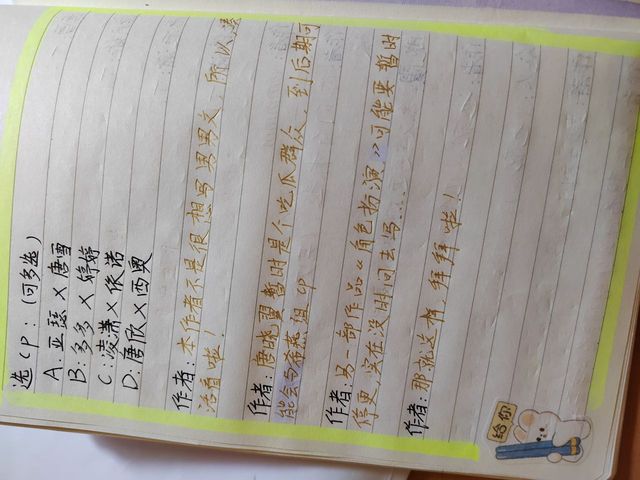 选CP：（可多选）
A：亚瑟×唐雪
B：多多×婷婷
C：凌潇×依诺
D：唐欣×西奥
作者：本作者不是很想写男男文，所以凑
活看啦！
作者：唐晓翼暂时是个吃瓜群众，到后期可
能会与希燕组CP
作者：另一部作品《角色扮演》可能要暂时
停更，实在没时间去写……
作者：那就这样，拜拜啦！
给你